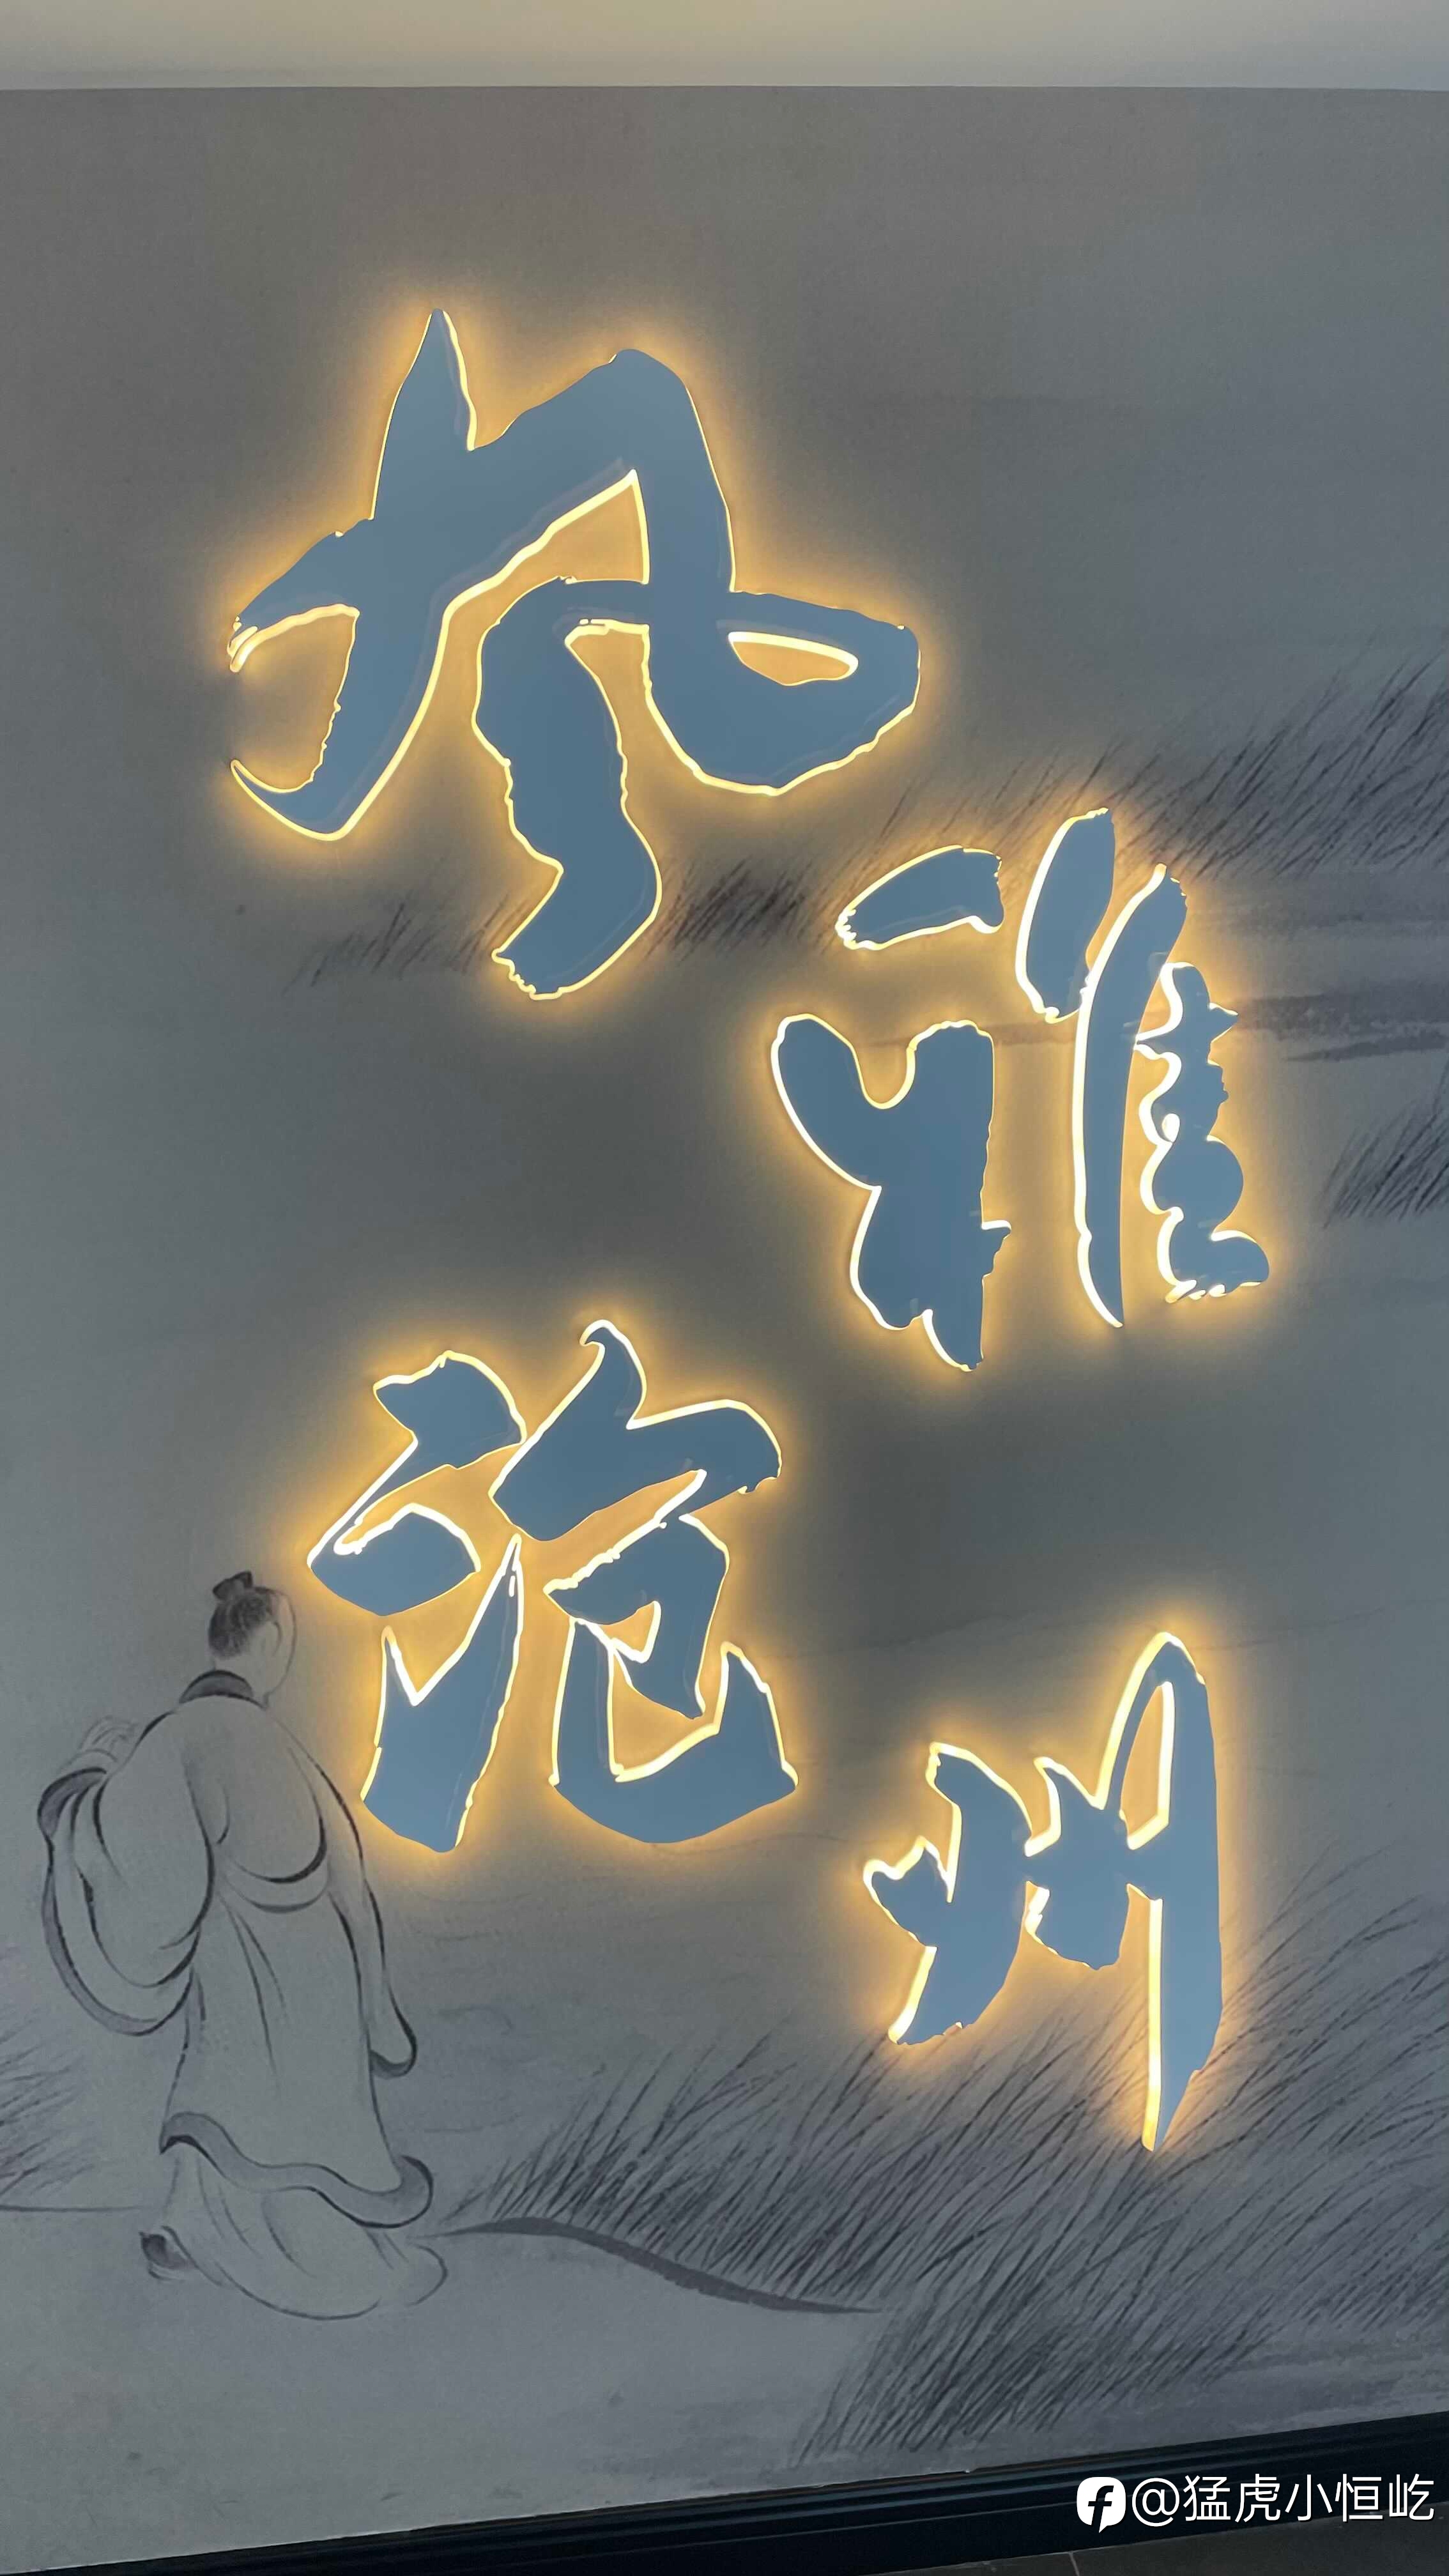 风雅沧州
@猛虎小恒屹